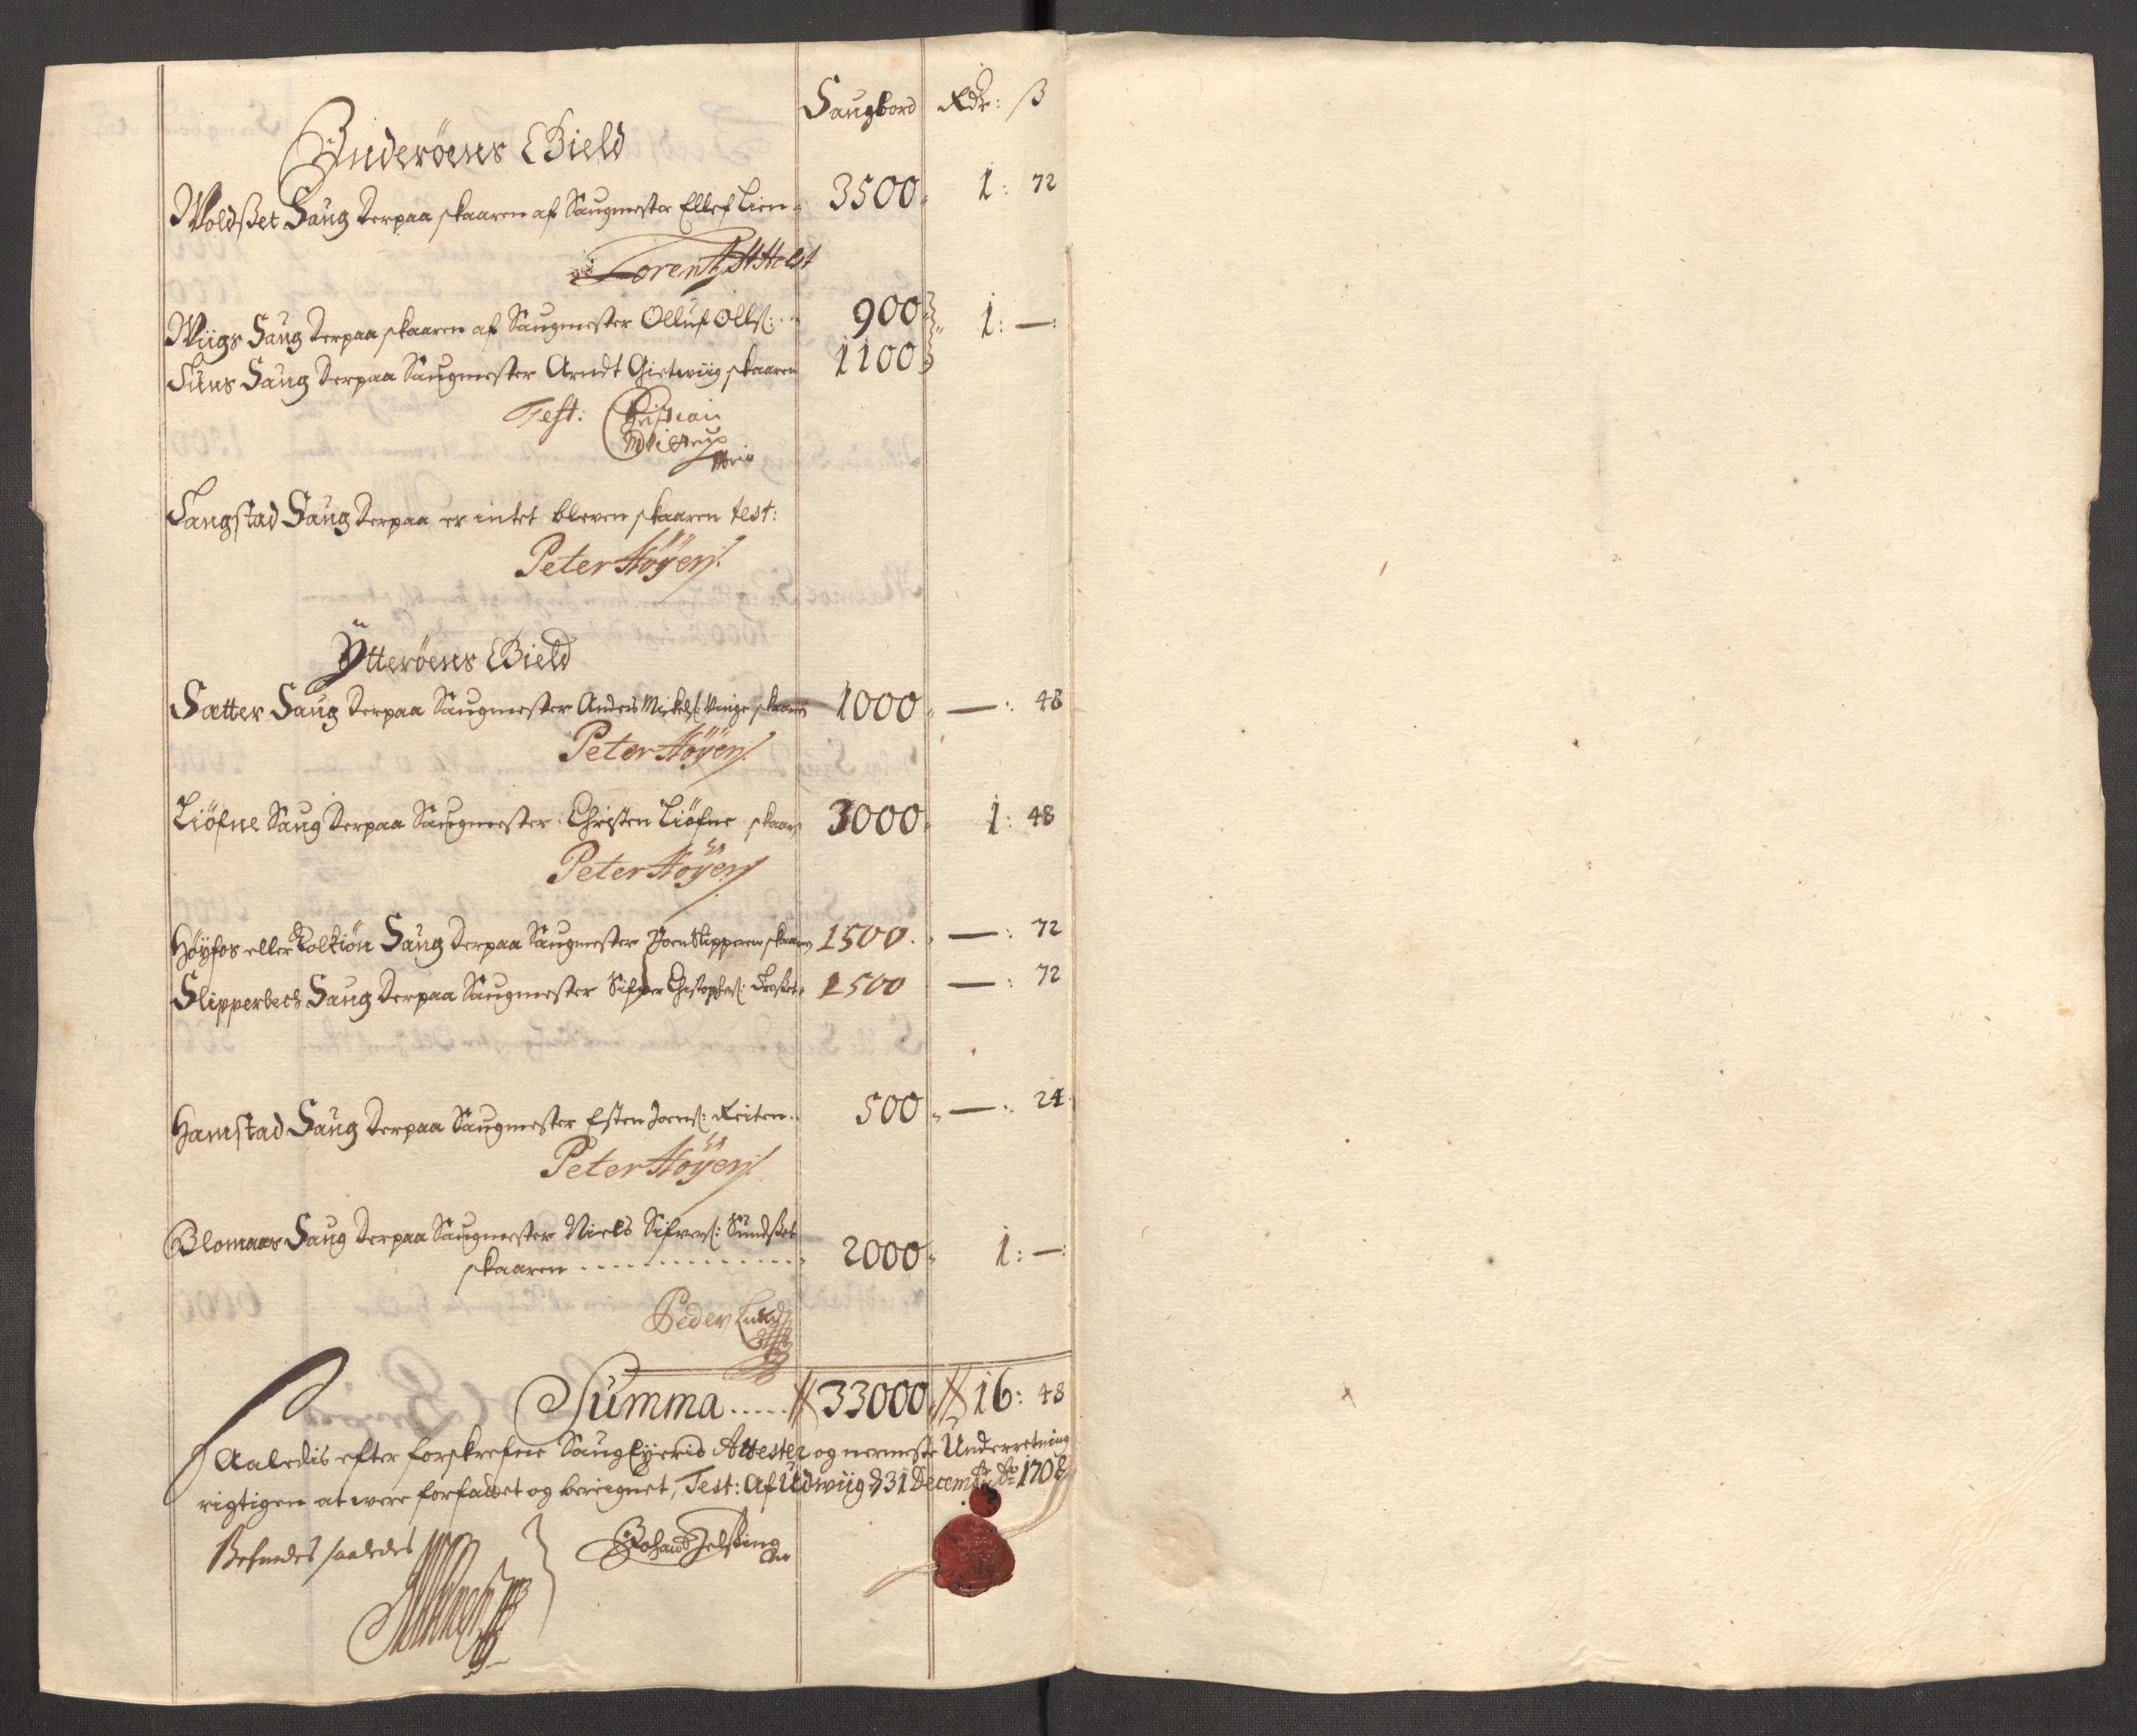 Saugbord Rdr: ß
Inderöens Gield
Woldßet Saug derpaa skaaren af Saugmester Ellef Lien 3500 1: 72
Lorentz Holst
Wiigs Saug derpaa skaaren af Saugmester Olluf Olls: 900 1: —
Suns Saug derpaa Saugmester Arndt Gietwiig skaaren 1100
Test: Christian
Langstad Saug derpaa er intet bleven skaaren test:
Peter Höyer
Ytteröens Gield
Sætter Saug derpaa Saugmester Anders Mickels: Vinge skaaren 1000 —: 48
Peter Höyer
Liöfne Saug derpaa Saugmester Christen Liöfne skaaren 3000 1: 48
Peter Höyer
Höyfos eller Koltiön Saug derpaa Saugmester Joen Slipperen skaaren 1500 —: 72
Slipperbech Saug derpaa Saugmester Sifver Christophers: 1500 —: 72
Hamstad Saug derpaa Saugmester Esten Joens: Reiten 500 —: 24
Peter Höyer
Blomaas Saug derpaa Saugmester Niels Sifvers: Sundßet
skaaren 2000 1: —
Peder
Summa 33000 16: 48
Saaledis efter forskrefne Saug Eyeris Attester og nermeste Underretning
rigtigen at were forfattet og beregnet, Test: Af Udwiig d 31 Decembr Ao 1708
Befindes saaledes